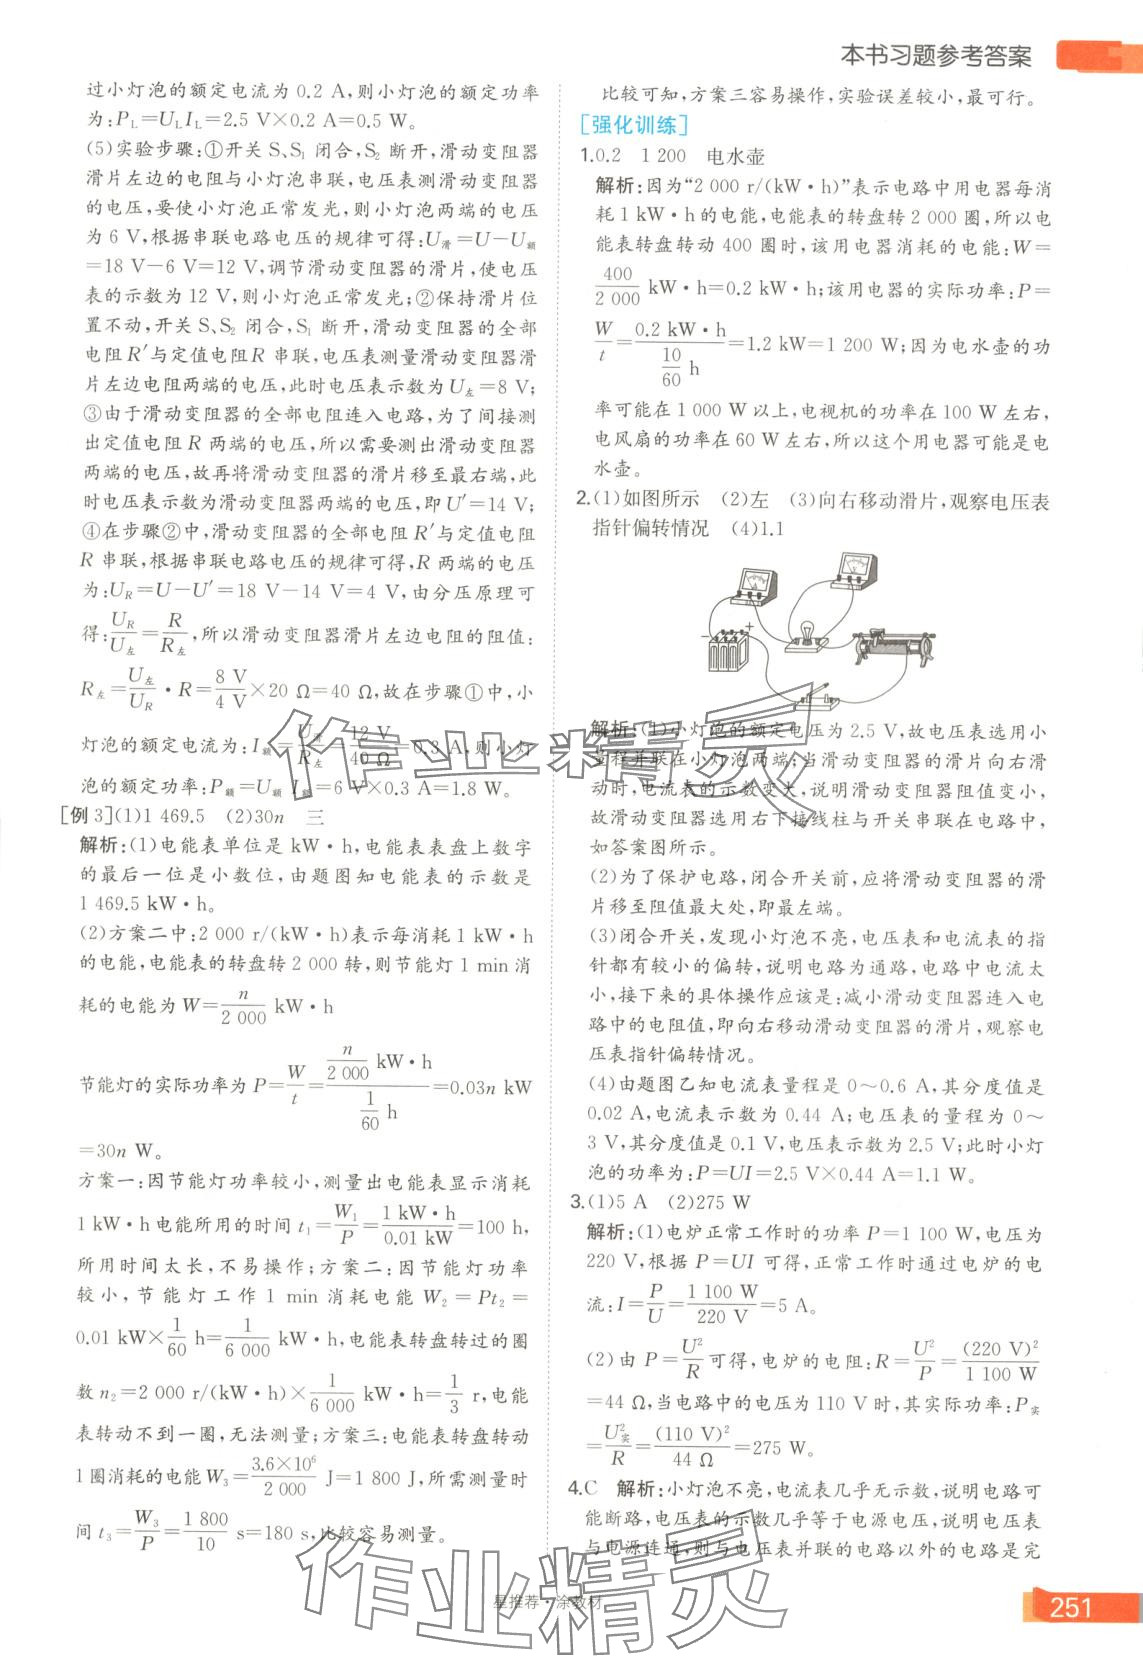 本书习题参考答案
过小灯泡的额定电流为0.2 A,则小灯泡的额定功率
为:P_L=U_L I_L=2.5 V×0.2 A=0.5 W。
(5)实验步骤:①开关 S、S₁ 闭合,S₂ 断开,滑动变阻器
滑片左边的电阻与小灯泡串联,电压表测滑动变阻器
的电压,要使小灯泡正常发光,则小灯泡两端的电压
为 6 V,根据串联电路电压的规律可得:U滑=U-U额
=18 V-6 V=12 V,调节滑动变阻器的滑片,使电压
表的示数为 12 V,则小灯泡正常发光;②保持滑片位
置不动,开关 S、S₂ 闭合,S₁ 断开,滑动变阻器的全部
电阻 R′与定值电阻 R 串联,电压表测量滑动变阻器滑
片左边电阻两端的电压,此时电压表示数为 U左=8 V;
③由于滑动变阻器的全部电阻连入电路,为了间接测
出定值电阻 R 两端的电压,所以需要测出滑动变阻器
两端的电压,故再将滑动变阻器的滑片移至最右端,此
时电压表示数为滑动变阻器两端的电压,即 U′=14 V;
④在步骤②中,滑动变阻器的全部电阻 R′与定值电阻
R 串联,根据串联电路电压的规律可得,R 两端的电压
为:U_R=U-U′=18 V-14 V=4 V,由分压原理可
得:U_R/U左=R/R左,所以滑动变阻器滑片左边电阻的阻值:
R左=U左/U_R·R=8 V/4 V×20 Ω=40 Ω,故在步骤①中,小
灯泡的额定电流为:I额=U滑/R左=12 V/40 Ω=0.3 A,则小灯
泡的额定功率:P额=U额 I额=6 V×0.3 A=1.8 W。
[例 3](1)1 469.5 (2)30n 三
解析:(1)电能表单位是 kW·h,电能表表盘上数字
的最后一位是小数位,由题图知电能表的示数是
1 469.5 kW·h。
(2)方案二中:2 000 r/(kW·h)表示每消耗 1 kW·h
的电能,电能表的转盘转 2 000 转,则节能灯 1 min 消
耗的电能为 W=n/2 000 kW·h
节能灯的实际功率为 P=W/t=(n/2 000 kW·h)/(1/60 h)=0.03n kW
=30n W。
方案一:因节能灯功率较小,测量出电能表显示消耗
1 kW·h 电能所用的时间 t₁=W₁/P=1 kW·h/0.01 kW=100 h,
所用时间太长,不易操作;方案二:因节能灯功率
较小,节能灯工作 1 min 消耗电能 W₂=Pt₂=
0.01 kW×1/60 h=1/6 000 kW·h,电能表转盘转过的圈
数 n₂=2 000 r/(kW·h)×1/6 000 kW·h=1/3 r,电能
表转动不到一圈,无法测量;方案三:电能表转盘转动
1 圈消耗的电能 W₃=3.6×10⁶/2 000 J=1 800 J,所需测量时
间 t₃=W₃/P=1 800/10 s=180 s,比较容易测量。
比较可知,方案三容易操作,实验误差较小,最可行。
[强化训练]
1.0.2 1 200 电水壶
解析:因为“2 000 r/(kW·h)”表示电路中用电器每消
耗 1 kW·h 的电能,电能表的转盘转 2 000 圈,所以电
能表转盘转动 400 圈时,该用电器消耗的电能:W=
400/2 000 kW·h=0.2 kW·h;该用电器的实际功率:P=
W/t=0.2 kW·h/(10/60 h)=1.2 kW=1 200 W;因为电水壶的功
率可能在 1 000 W 以上,电视机的功率在 100 W 左右,
电风扇的功率在 60 W 左右,所以这个用电器可能是电
水壶。
2.(1)如图所示 (2)左 (3)向右移动滑片,观察电压表
指针偏转情况 (4)1.1
- +
解析:(1)小灯泡的额定电压为 2.5 V,故电压表选用小
量程并联在小灯泡两端;当滑动变阻器的滑片向右滑
动时,电流表的示数变大,说明滑动变阻器阻值变小,
故滑动变阻器选用右下接线柱与开关串联在电路中,
如答案图所示。
(2)为了保护电路,闭合开关前,应将滑动变阻器的滑
片移至阻值最大处,即最左端。
(3)闭合开关,发现小灯泡不亮,电压表和电流表的指
针都有较小的偏转,说明电路为通路,电路中电流太
小,接下来的具体操作应该是:减小滑动变阻器连入电
路中的电阻值,即向右移动滑动变阻器的滑片,观察电
压表指针偏转情况。
(4)由题图乙知电流表量程是 0～0.6 A,其分度值是
0.02 A,电流表示数为 0.44 A;电压表的量程为 0～
3 V,其分度值是 0.1 V,电压表示数为 2.5 V;此时小灯
泡的功率为:P=UI=2.5 V×0.44 A=1.1 W。
3.(1)5 A (2)275 W
解析:(1)电炉正常工作时的功率 P=1 100 W,电压为
220 V,根据 P=UI 可得,正常工作时通过电炉的电
流:I=P/U=1 100 W/220 V=5 A。
(2)由 P=U²/R可得,电炉的电阻:R=U²/P=(220 V)²/1 100 W
=44 Ω,当电路中的电压为 110 V 时,其实际功率:P实
=U实²/R=(110 V)²/44 Ω=275 W。
4.C 解析:小灯泡不亮,电流表几乎无示数,说明电路可
能断路,电压表的示数几乎等于电源电压,说明电压表
与电源连通,则与电压表并联的电路以外的电路是完
作业精灵
作业精灵
星推荐·涂教材
251